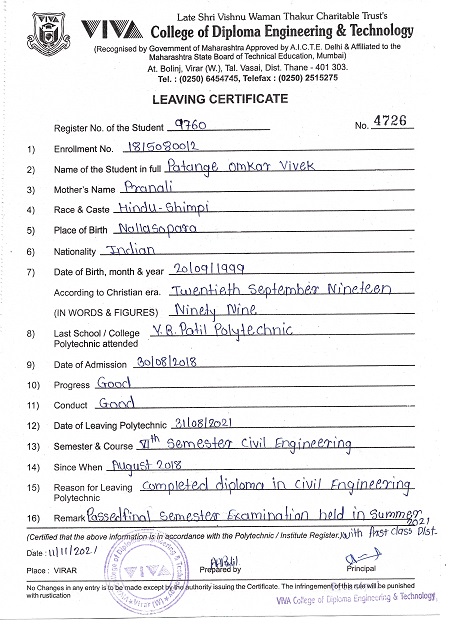 Late Shri Vishnu Waman Thakur Charitable Trust's
VIVA College of Diploma Engineering & Technology
(Recognised by Government of Maharashtra Approved by A.I.C.T.E. Delhi & Affiliated to the
Maharashtra State Board of Technical Education, Mumbai)
At. Bolinj, Virar (W.), Tal. Vasai, Dist. Thane - 401 303.
Tel. : (0250) 6454745, Telefax : (0250) 2515275
LEAVING CERTIFICATE
Register No. of the Student 9760 No. 4726
1) Enrollment No. 1815080012
2) Name of the Student in full Patange Omkar Vivek
3) Mother's Name Pranali
4) Race & Caste Hindu-Shimpi
5) Place of Birth Nallasopara
6) Nationality Indian
7) Date of Birth, month & year 20/09/1999
According to Christian era. Twentieth September Nineteen
(IN WORDS & FIGURES) Ninety Nine
8) Last School / College V.R.Patil Polytechnic
Polytechnic attended
9) Date of Admission 30/08/2018
10) Progress Good
11) Conduct Good
12) Date of Leaving Polytechnic 31/08/2021
13) Semester & Course VIth Semester Civil Engineering
14) Since When August 2018
15) Reason for Leaving Completed diploma in Civil Engineering
Polytechnic
16) Remark Passed final Semester Examination held in Summer 2021
(Certified that the above information is in accordance with the Polytechnic / Institute Register.) with first Class Dist.
Date : 11/11/2021
Place : VIRAR Prepared by Principal
VIVA
No Changes in any entry is to be made except by the authority issuing the Certificate. The infringement of this rule will be punished
with rustication
VIVA College of Diploma Engineering & Technology